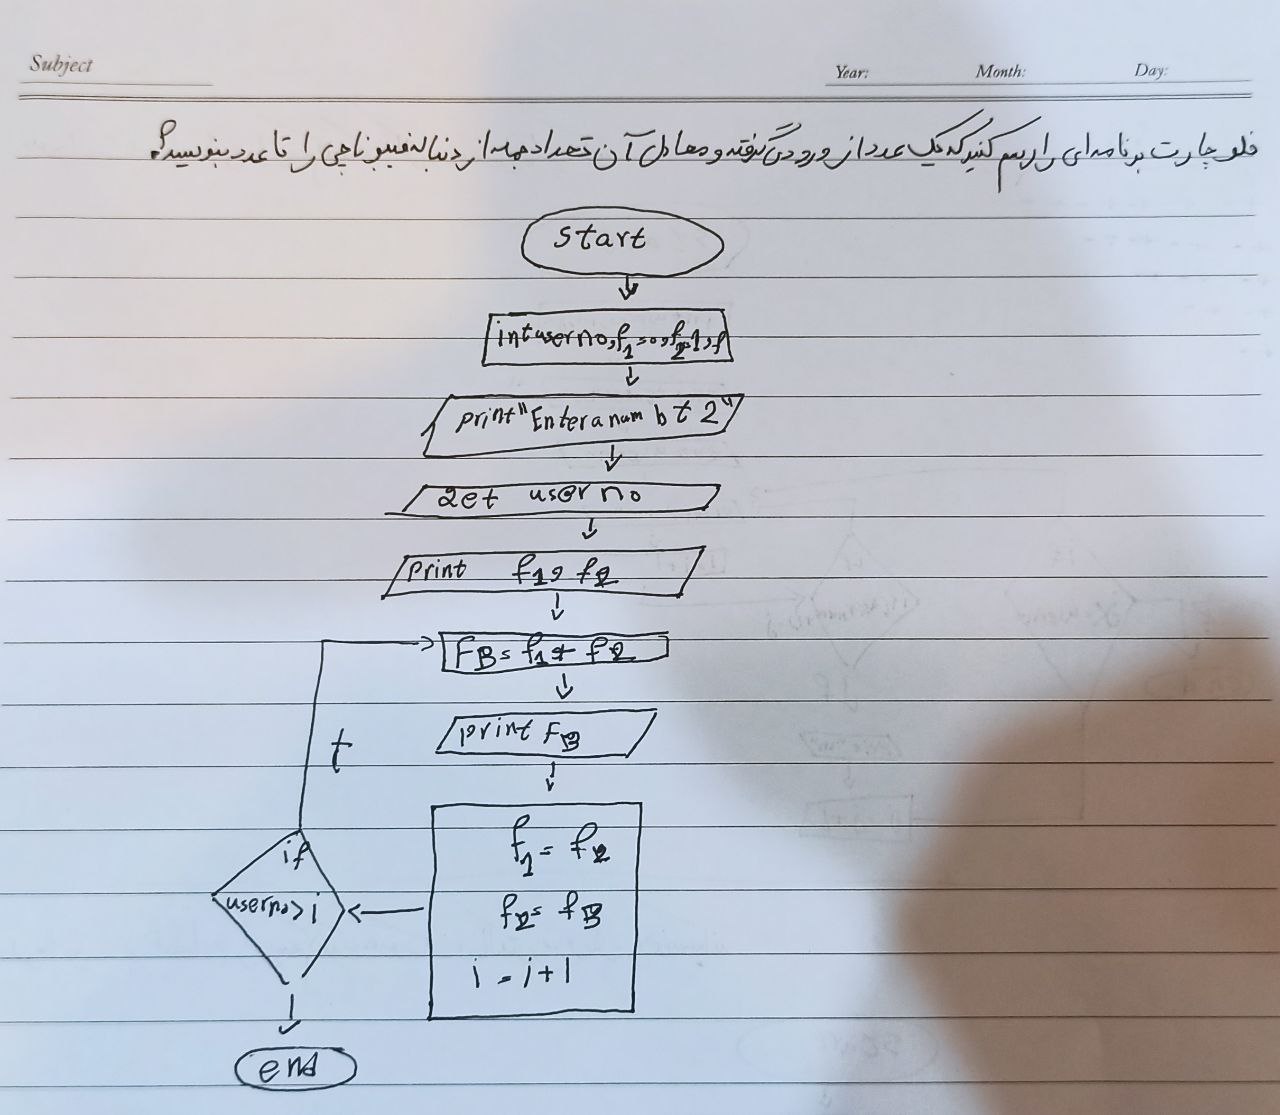 Subject
Year: Month: Day:
فلوچارت برنامه‌ای را رسم کنید که یک عدد از ورودی گرفته و معادل آن تعداد جمله از دنباله فیبوناچی را تا عدد بنویسید؟
start
int userno, f1=0, f2=1, f
print "Enter a num b t 2"
get userno
print f1, f2
FB = f1 + f2
print FB
t
f1 = f2
f2 = fB
i = i+1
if
userno > i
end